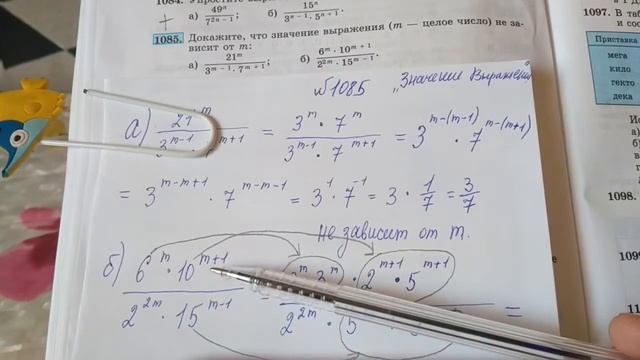 1084. Упростите выраже
а) 49ⁿ/7²ⁿ⁻¹; б) 15ⁿ/3ⁿ⁻¹·5ⁿ⁺¹.
1085. Докажите, что значение выражения (m — целое число) не за-
висит от m:
а) 21ᵐ/3ᵐ⁻¹·7ᵐ⁺¹; б) 6ᵐ·10ᵐ⁺¹/2²ᵐ·15ᵐ⁻¹.
1097. В таб
и соо
Приставка
мега
кило
гекто
дека
1098.
№1085 „Значение Выражения
а) 21ᵐ/3ᵐ⁻¹ ᵐ⁺¹ = 3ᵐ·7ᵐ/3ᵐ⁻¹·7ᵐ⁺¹ = 3ᵐ⁻⁽ᵐ⁻¹⁾·7ᵐ⁻⁽ᵐ⁺¹⁾
= 3ᵐ⁻ᵐ⁺¹·7ᵐ⁻ᵐ⁻¹ = 3¹·7⁻¹ = 3·1/7 = 3/7
не зависит от m.
б) 6ᵐ·10ᵐ⁺¹/2²ᵐ·15ᵐ⁻¹ = 2ᵐ·3ᵐ·2ᵐ⁺¹·5ᵐ⁺¹/2²ᵐ·5 =